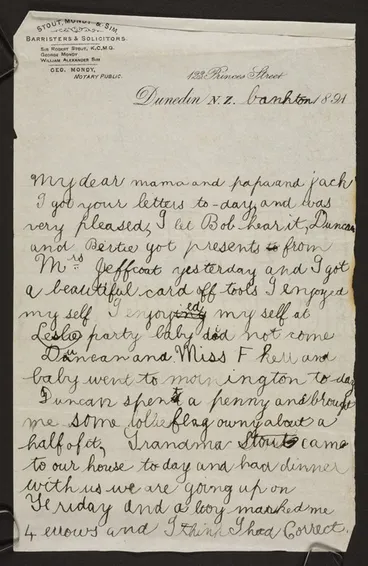 STOUT, MONDY & SIM,
BARRISTERS & SOLICITORS.
SIR ROBERT STOUT, K.C.M.G.
GEORGE MONDY
WILLIAM ALEXANDER SIM
GEO. MONDY,
NOTARY PUBLIC.
122 Princes Street
Dunedin N.Z. 1891
My dear mama and papa and jack
I got your letters to-day and was
very pleased, I let Bob hear it, Duncan
and Bertie got presents from
Mrs Jeffcoat yesterday and I got
a beautiful card off tools I enjoyed
my self I enjoyed my self at
party baby did not come
Duncan and Miss F Kerr and
baby went to mornington to day
Duncan spent a penny and brought
me some about a
half of it, Grandma Stout came
to our house to day and had dinner
with us we are going up on
Friday and a boy marked me
4 errows and I think I had Correct.